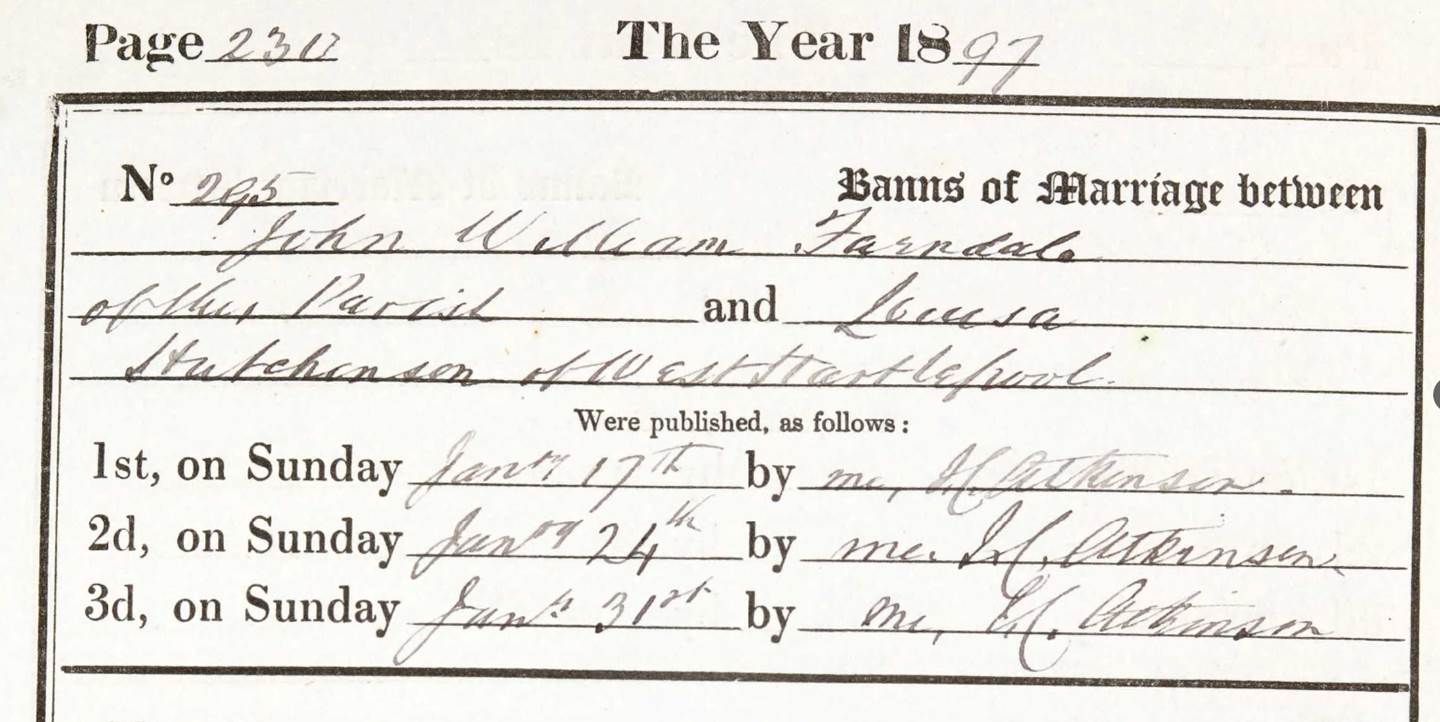 Page 230 The Year 1897
No 295 Banns of Marriage between
John William Farndale
of this Parish and Louisa
Hutchinson of West Hartlepool
Were published, as follows:
1st, on Sunday Janry 17th by me, J.C. Atkinson.
2d, on Sunday Janry 24th by me. J.C. Atkinson.
3d, on Sunday Jany 31st by me, J.C. Atkinson